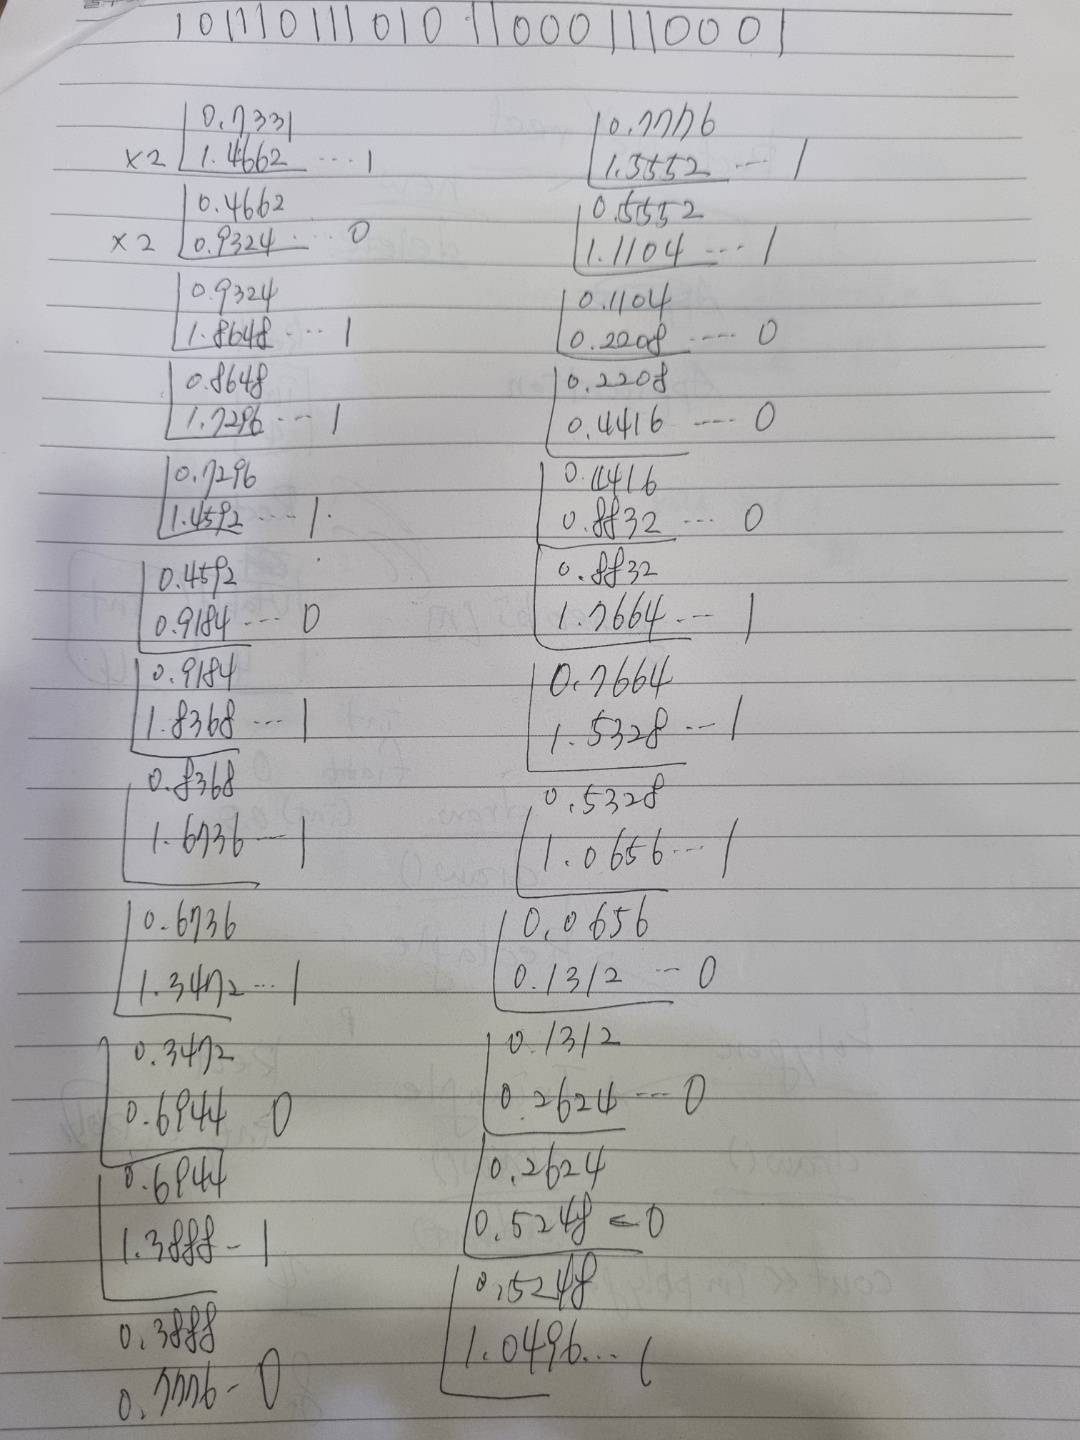 101110111010 110001110001
0.7331
×2 1.4662 ... 1
0.4662
×2 0.9324 ... 0
0.9324
1.8648 ... 1
0.8648
1.7296 ... 1
0.7296
1.4592 ... 1
0.4592
0.9184 ... 0
0.9184
1.8368 ... 1
0.8368
1.6736 ... 1
0.6736
1.3472 ... 1
0.3472
0.6944 0
0.6944
1.3888 - 1
0.3888
0.7776 - 0
0.7776
1.5552 ... 1
0.5552
1.1104 ... 1
0.1104
0.2208 ... 0
0.2208
0.4416 ... 0
0.4416
0.8832 ... 0
0.8832
1.7664 ... 1
0.7664
1.5328 ... 1
0.5328
1.0656 ... 1
0.0656
0.1312 ... 0
0.1312
0.2624 ... 0
0.2624
0.5248 - 0
0.5248
1.0496 ... 1